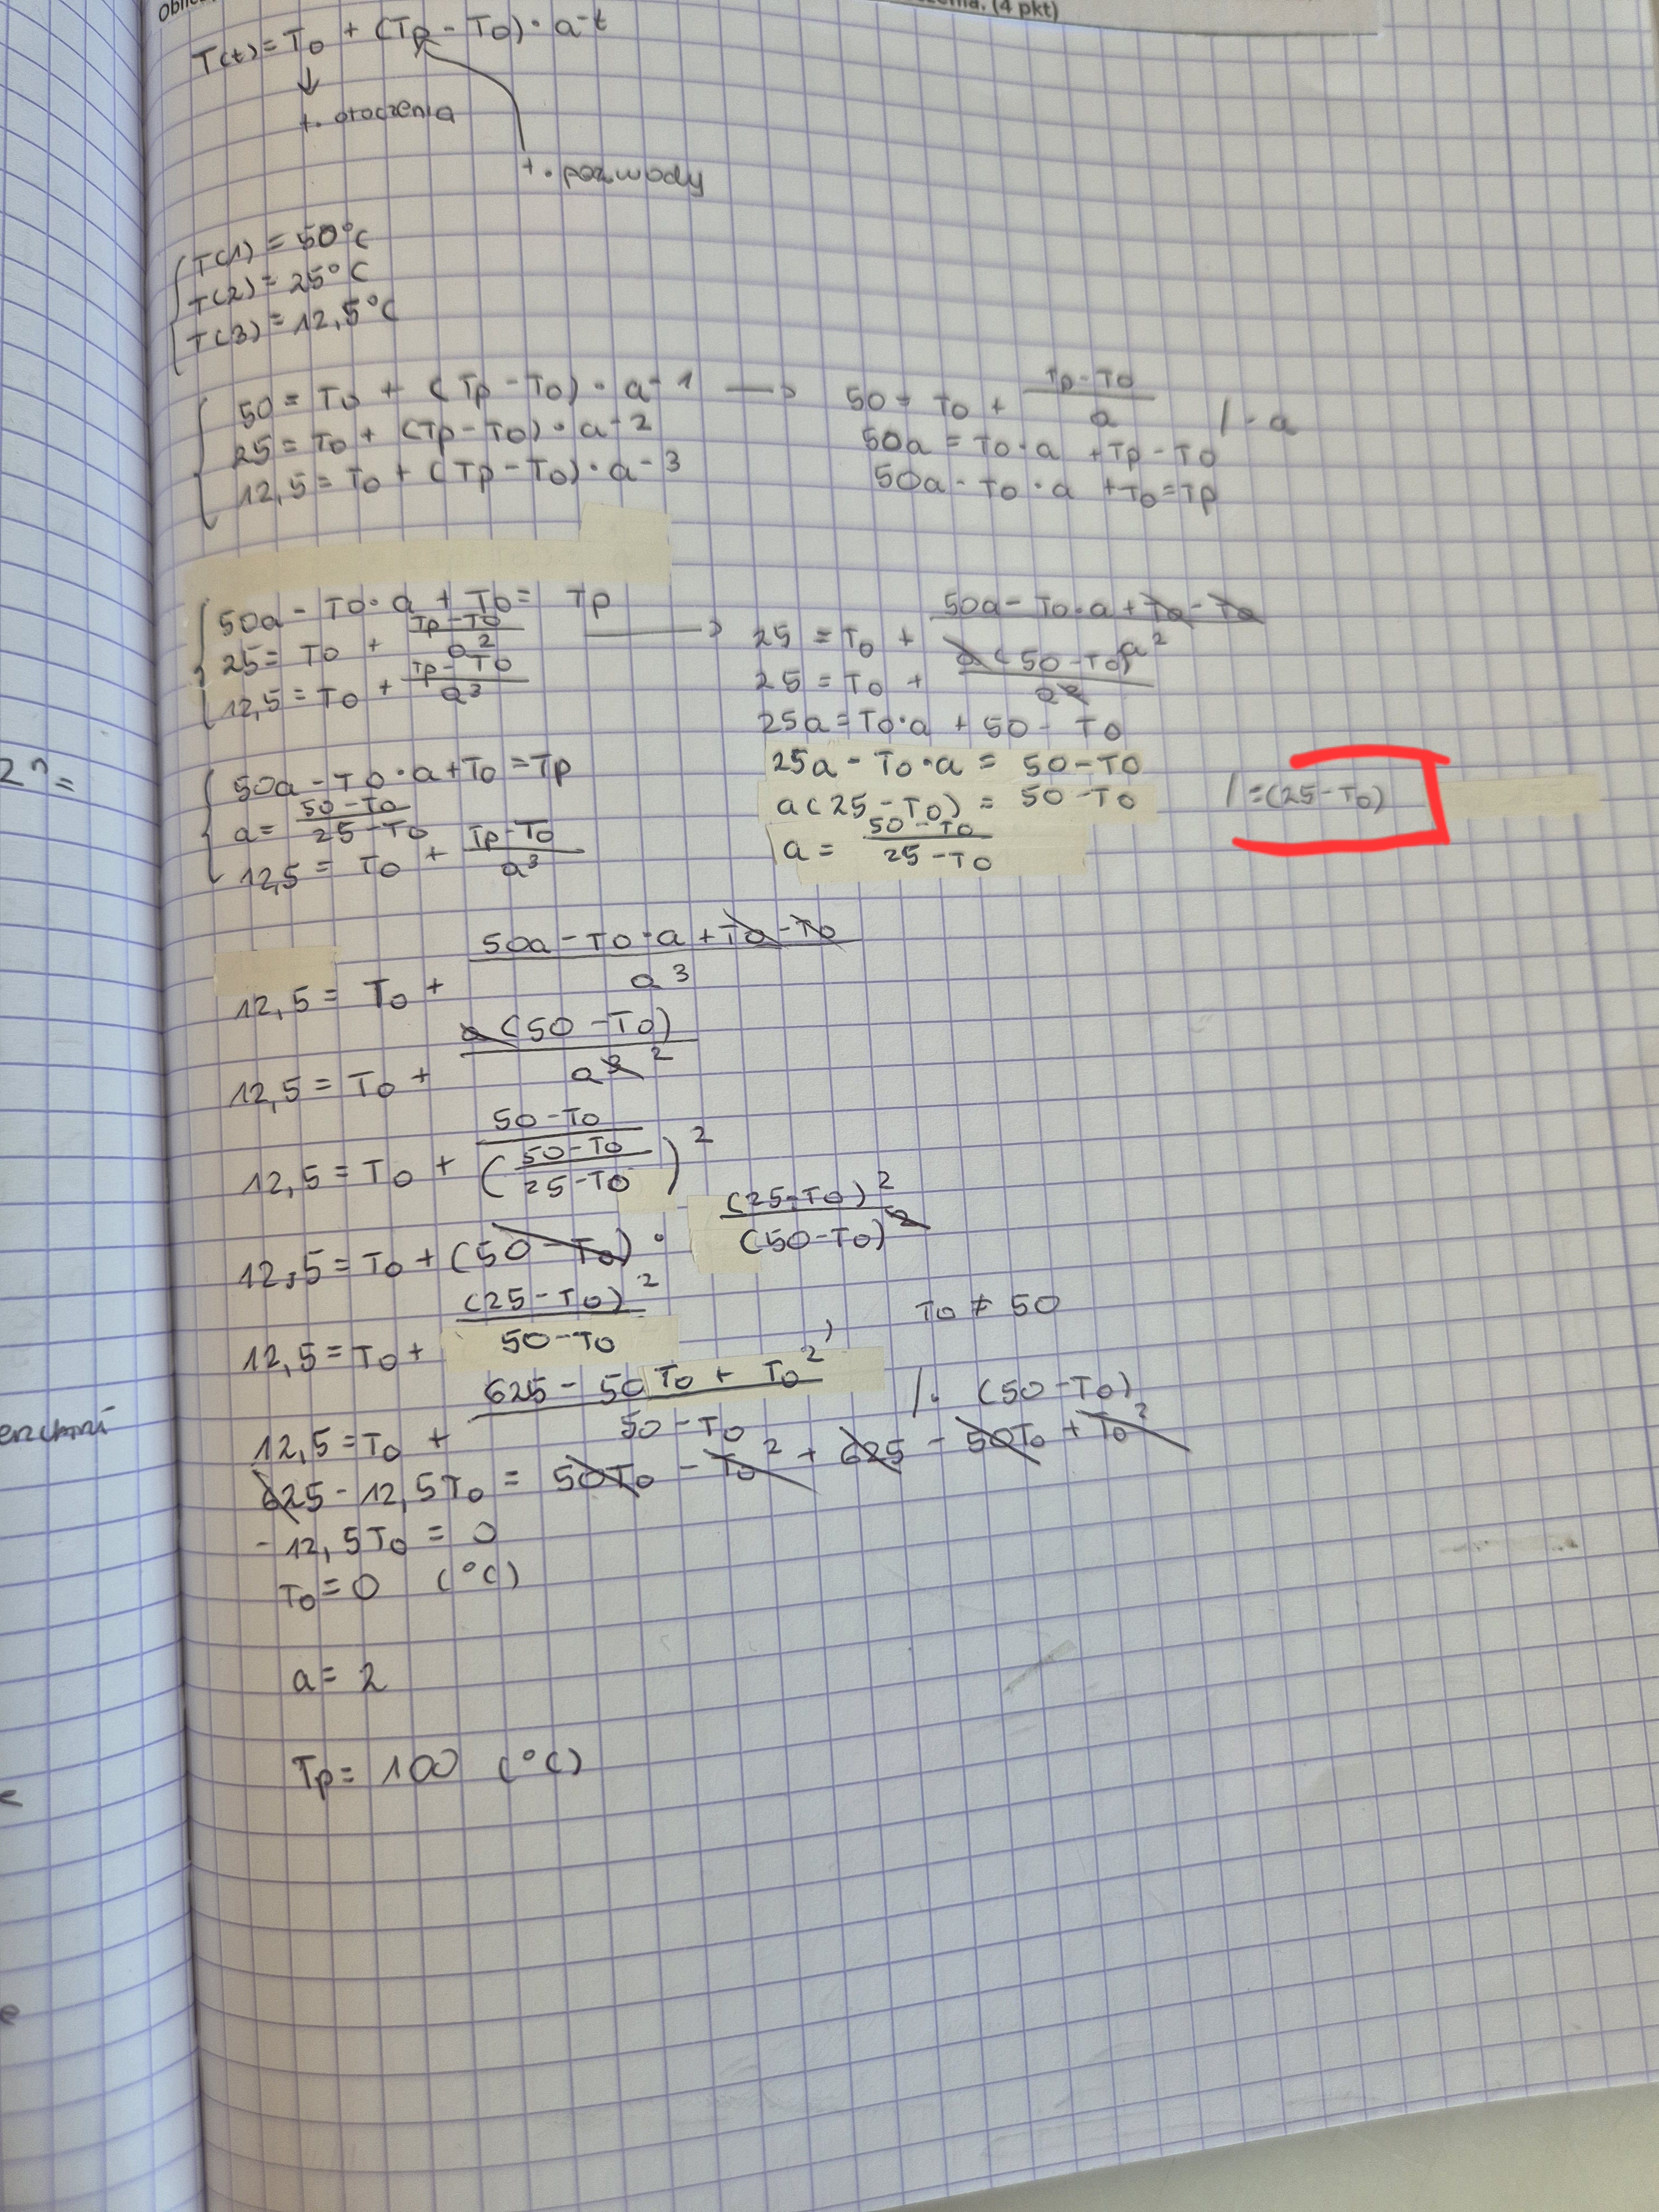 (4 pkt)
T(t) = To + (Tp - To) · a-t
↓
t. otoczenia
t. pocz wody
T(1) = 50°C
T(2) = 25°C
T(3) = 12,5°C
50 = To + (Tp - To) · a-1 → 50 = To + (Tp - To)/a /· a
25 = To + (Tp - To) · a-2 50a = To · a + Tp - To
12,5 = To + (Tp - To) · a-3 50a - To · a + To = Tp
50a - To · a + To = Tp
25 = To + (Tp - To)/a² → 25 = To + (50a - To · a + To - To)/a²
12,5 = To + (Tp - To)/a³ 25 = To + a(50 - To)/a²
25a = To · a + 50 - To
50a - To · a + To = Tp 25a - To · a = 50 - To
2^n =
a = (50 - To)/(25 - To) a(25 - To) = 50 - To /=(25 - To)
12,5 = To + (Tp - To)/a³ a = (50 - To)/(25 - To)
12,5 = To + (50a - To · a + To - To)/a³
12,5 = To + a(50 - To)/a³ ²
12,5 = To + (50 - To)/((50 - To)/(25 - To))²
12,5 = To + (50 - To) · (25 - To)²/(50 - To)²
12,5 = To + (25 - To)²/(50 - To) , To ≠ 50
12,5 = To + (625 - 50To + To²)/(50 - To) /· (50 - To)
625 - 12,5To = 50To - To² + 625 - 50To + To²
- 12,5To = 0
To = 0 (°C)
a = 2
Tp = 100 (°C)
e
e